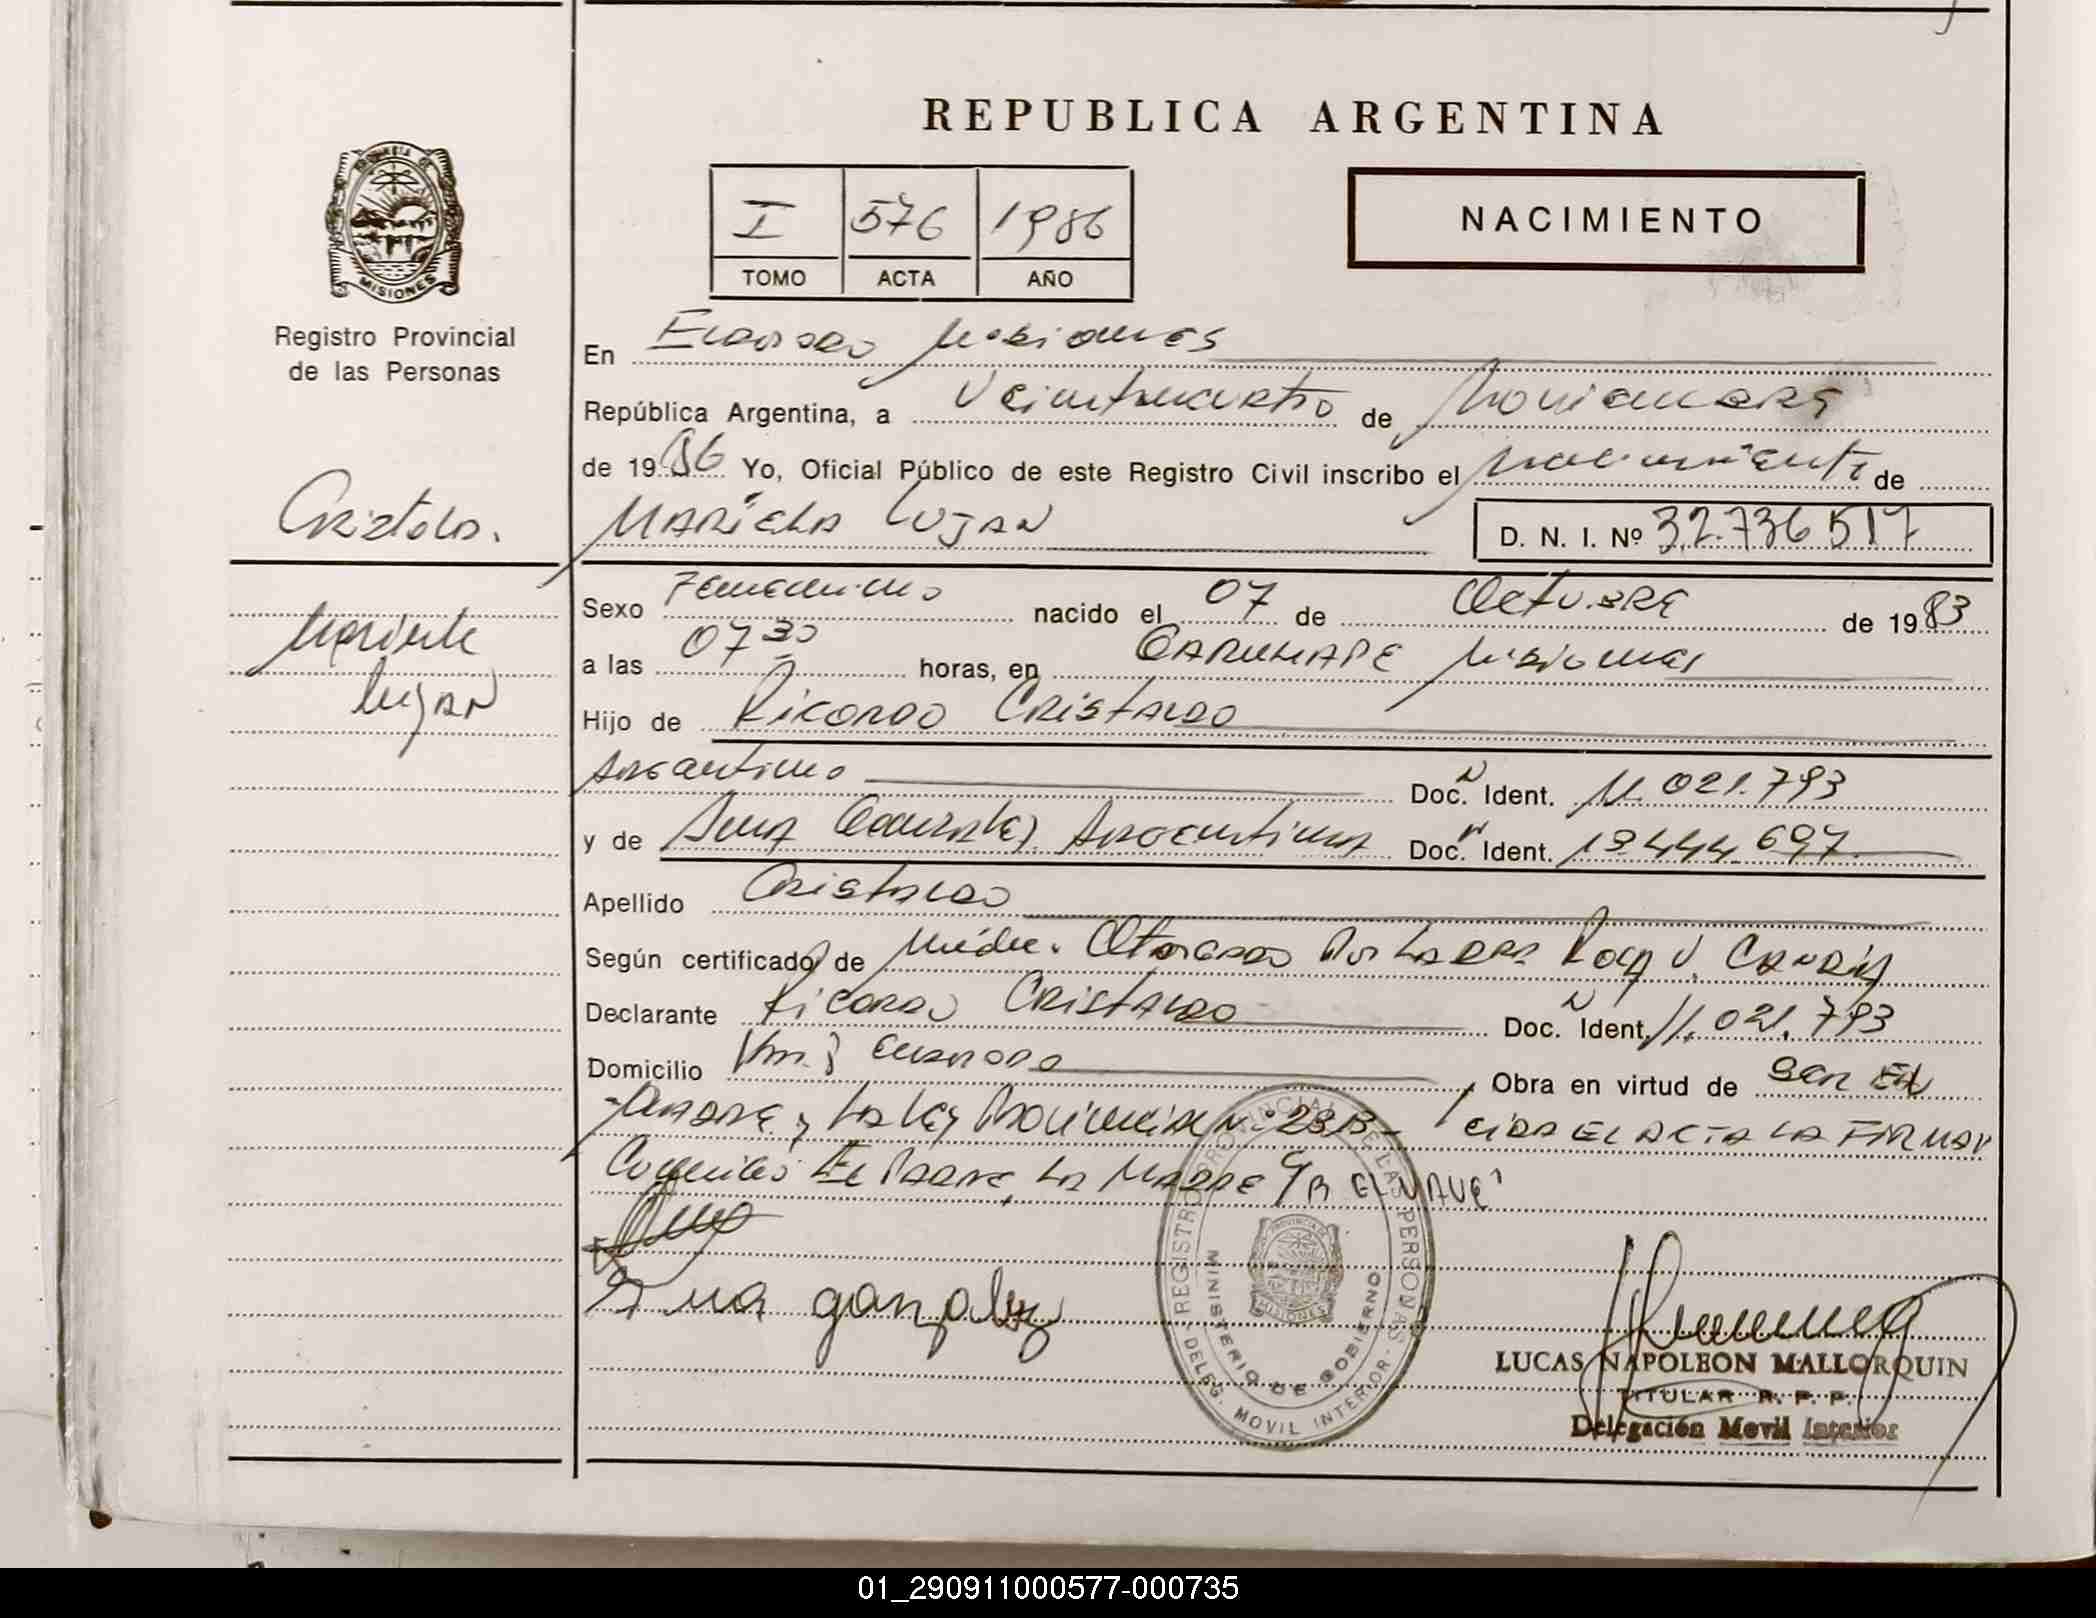 REPUBLICA ARGENTINA
PROVINCIA DE
MISIONES
Registro Provincial
de las Personas
I 576 1986
TOMO ACTA AÑO
NACIMIENTO
En Eldorado Misiones
República Argentina, a Veinticuatro de Noviembre
de 1986 Yo, Oficial Público de este Registro Civil inscribo el nacimiento de
MARIELA LUJAN D. N. I. Nº 32.736517
Sexo Femenino nacido el 07 de Octubre de 1983
a las 07 30 horas, en CARUHAPE Misiones
Hijo de Ricardo Cristaldo
Argentino Doc. N Ident. 11.021.793
y de Ana Gonzalez Argentina Doc. N Ident. 13.444.697
Apellido Cristaldo
Según certificado de Médic. Otorgado Por La DRA
Declarante Ricardo Cristaldo Doc. N Ident. 11.021.793
Domicilio Km. Obra en virtud de Ser El
Padre y La Ley Provincial N: LEIDA EL ACTA LA FIRMAN
Conmigo El Padre, La MADRE
Ana gonzalez
Cristaldo.
Mariela
Lujan
REGISTRO PROVINCIAL DE LAS PERSONAS - DELEG. MOVIL INTERIOR -
MINISTERIO DE GOBIERNO
PROVINCIA DE
MISIONES
LUCAS NAPOLEON MALLORQUIN
TITULAR R. P. P.
Delegación Movil Interior
01_290911000577-000735